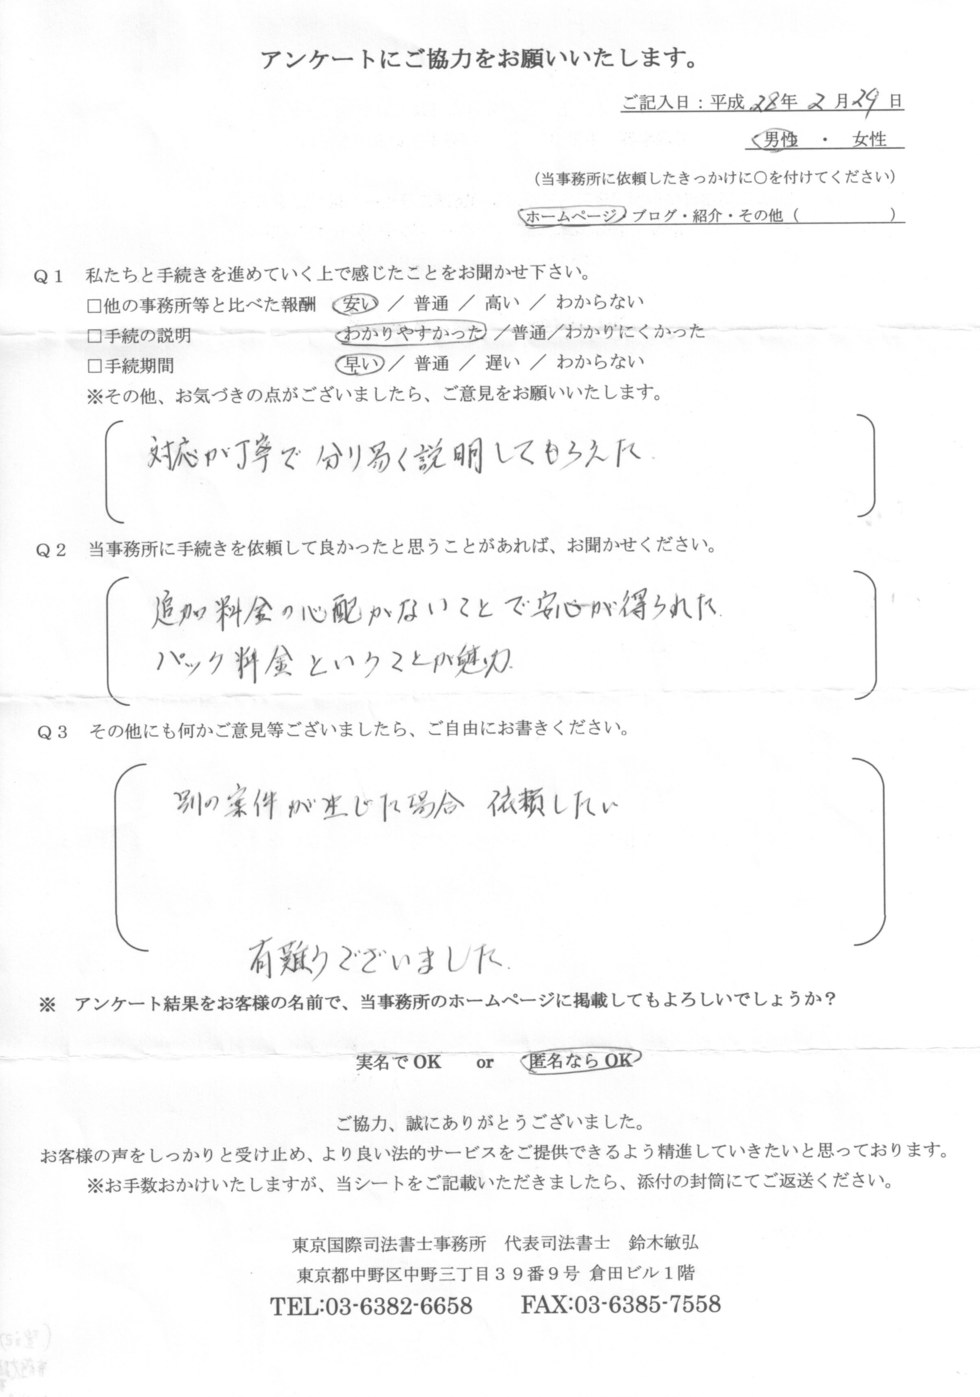 アンケートにご協力をお願いいたします。
ご記入日：平成 28年 2月29日
男性 ・ 女性
（当事務所に依頼したきっかけに○を付けてください）
ホームページ・ブログ・紹介・その他（　　　　　）
Ｑ１　私たちと手続きを進めていく上で感じたことをお聞かせ下さい。
□他の事務所等と比べた報酬　安い ／ 普通 ／ 高い ／ わからない
□手続の説明　わかりやすかった ／普通／わかりにくかった
□手続期間　早い ／ 普通 ／ 遅い ／ わからない
※その他、お気づきの点がございましたら、ご意見をお願いいたします。
対応が丁寧で 分り易く説明してもらえた.
Ｑ２　当事務所に手続きを依頼して良かったと思うことがあれば、お聞かせください。
追加料金の心配がないことで安心が得られた.
パック料金ということが魅力.
Ｑ３　その他にも何かご意見等ございましたら、ご自由にお書きください。
別の案件が生じた場合 依頼したい
有難うございました.
※　アンケート結果をお客様の名前で、当事務所のホームページに掲載してもよろしいでしょうか？
実名で OK　　or　　匿名なら OK
ご協力、誠にありがとうございました。
お客様の声をしっかりと受け止め、より良い法的サービスをご提供できるよう精進していきたいと思っております。
※お手数おかけいたしますが、当シートをご記載いただきましたら、添付の封筒にてご返送ください。
東京国際司法書士事務所　代表司法書士　鈴木敏弘
東京都中野区中野三丁目３９番９号 倉田ビル１階
TEL:03-6382-6658　　FAX:03-6385-7558